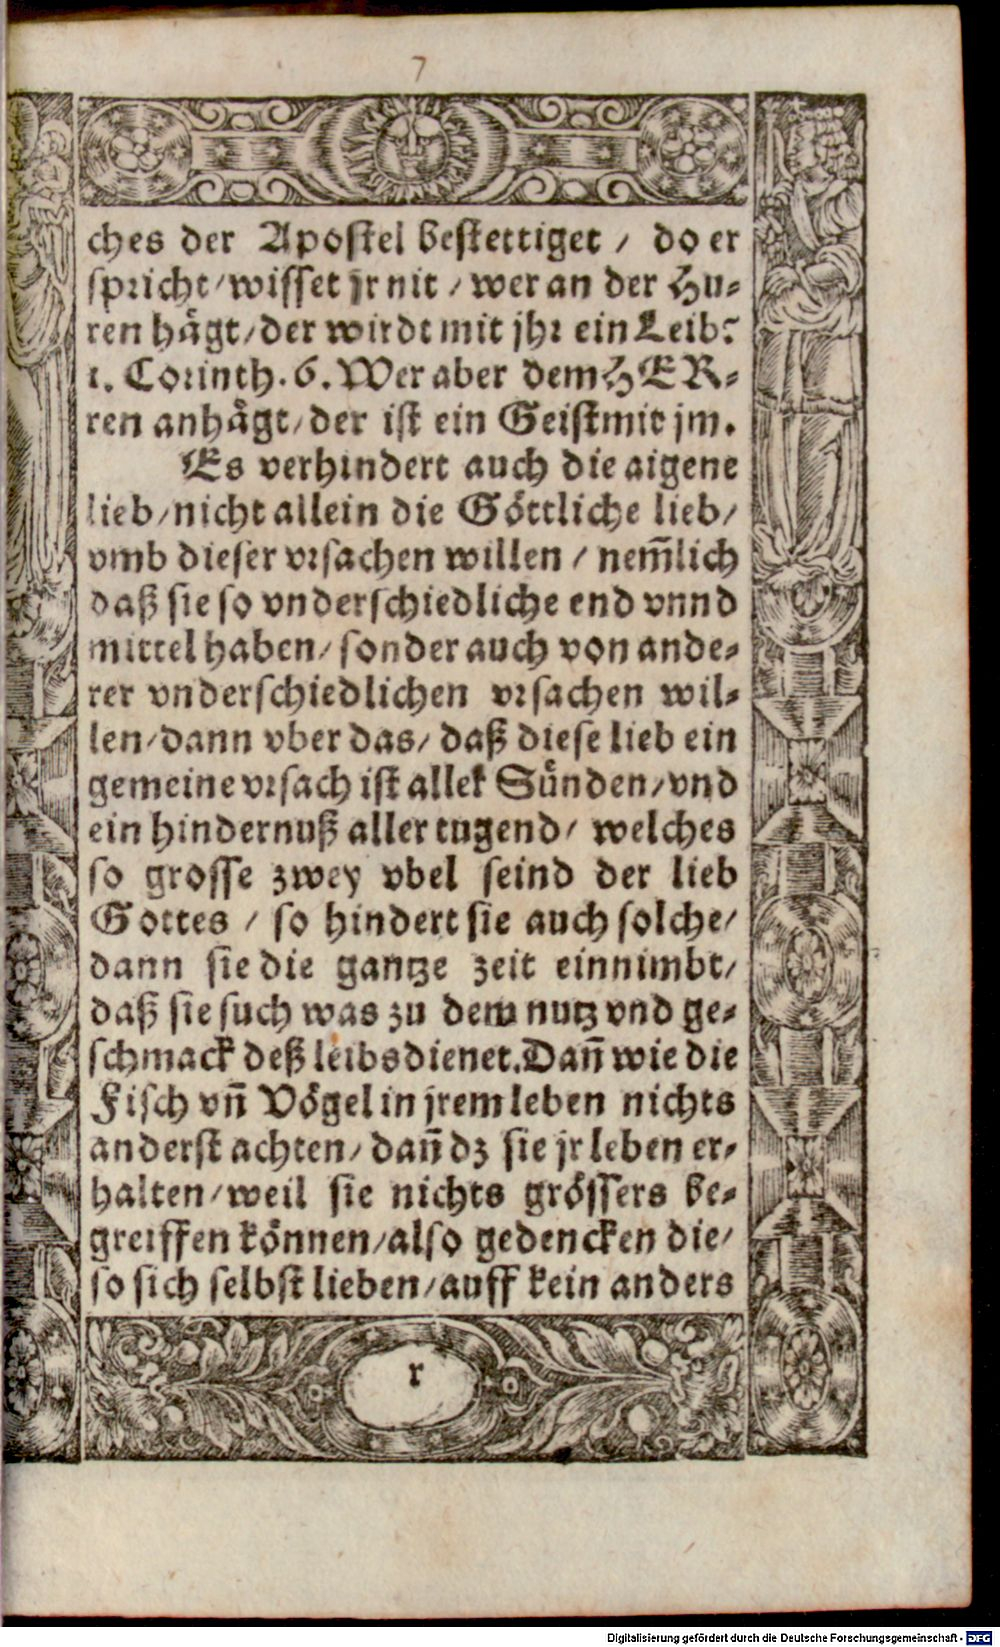 7
ches der Apostel bestettiget / do er
spricht / wisset jr nit / wer an der Hu-
ren hägt / der wirdt mit jhr ein Leib?
1. Corinth. 6. Wer aber dem HER-
ren anhägt / der ist ein Geist mit jm.
Es verhindert auch die aigene
lieb / nicht allein die Göttliche lieb /
vmb dieser vrsachen willen / nem̄lich
daß sie so vnderschiedliche end vnnd
mittel haben / sonder auch von ande-
rer vnderschiedlichen vrsachen wil-
len / dann vber das / daß diese lieb ein
gemeine vrsach ist aller Sünden / vnd
ein hindernuß aller tugend / welches
so grosse zwey vbel seind der lieb
Gottes / so hindert sie auch solche /
dann sie die gantze zeit einnimbt /
daß sie such was zu dem nutz vnd ge-
schmack deß leibs dienet. Dañ wie die
Fisch vñ Vögel in jrem leben nichts
anderst achten / dañ dz sie jr leben er-
halten / weil sie nichts grössers be-
greiffen können / also gedencken die /
so sich selbst lieben / auff kein anders
r
Digitalisierung gefördert durch die Deutsche Forschungsgemeinschaft - DFG